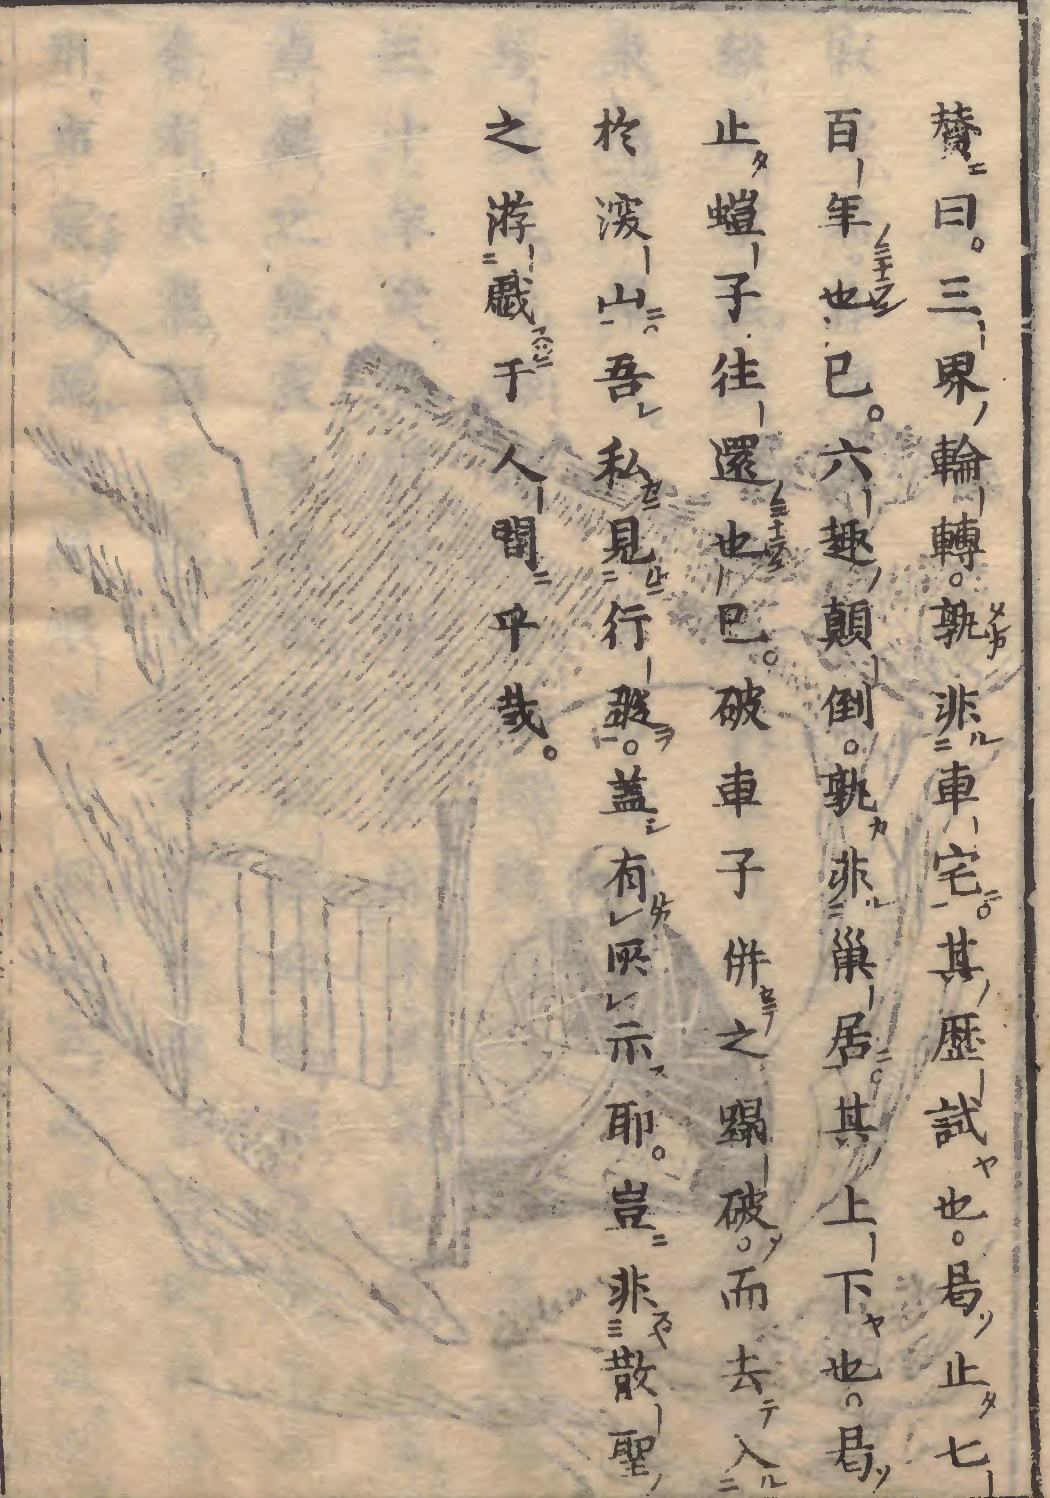 贊曰。三界輪轉。孰非車宅。其歷試也。曷止七
百年也已。六趣顛倒。孰非巢居。其上下也。曷
止螘子往還也已。破車子併之蹋破。而去入
於深山。吾私見行蹤。蓋有所示耶。豈非散聖
之游戲于人間乎哉。